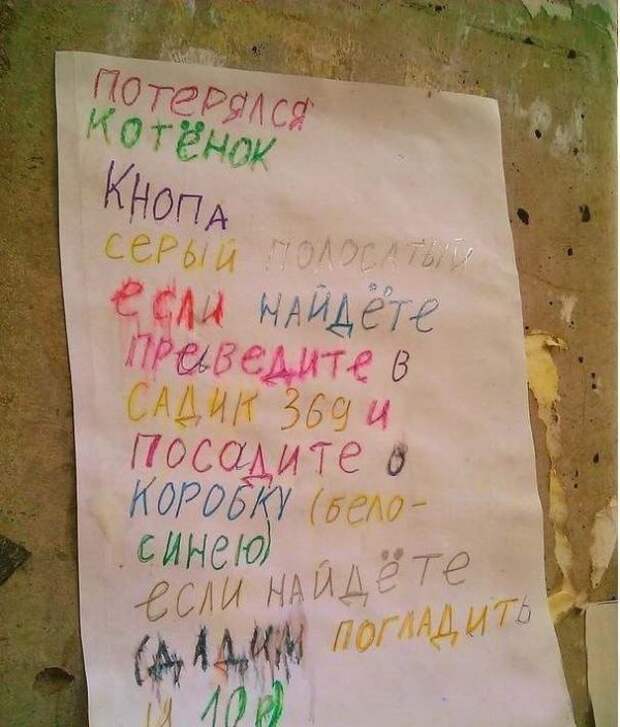 ПОТЕРЯЛСЯ
КОТЁНОК
КНОПА
СЕРЫЙ ПОЛОСАТЫЙ
если НАЙДЁТЕ
ПРеВЕДИТЕ В
САДИК 369 и
ПОСАДИТЕ О
КОРОБКУ (бело-
синею)
если НАЙДЁТЕ
ДАДИМ ПОГЛАДИТЬ
И 10р